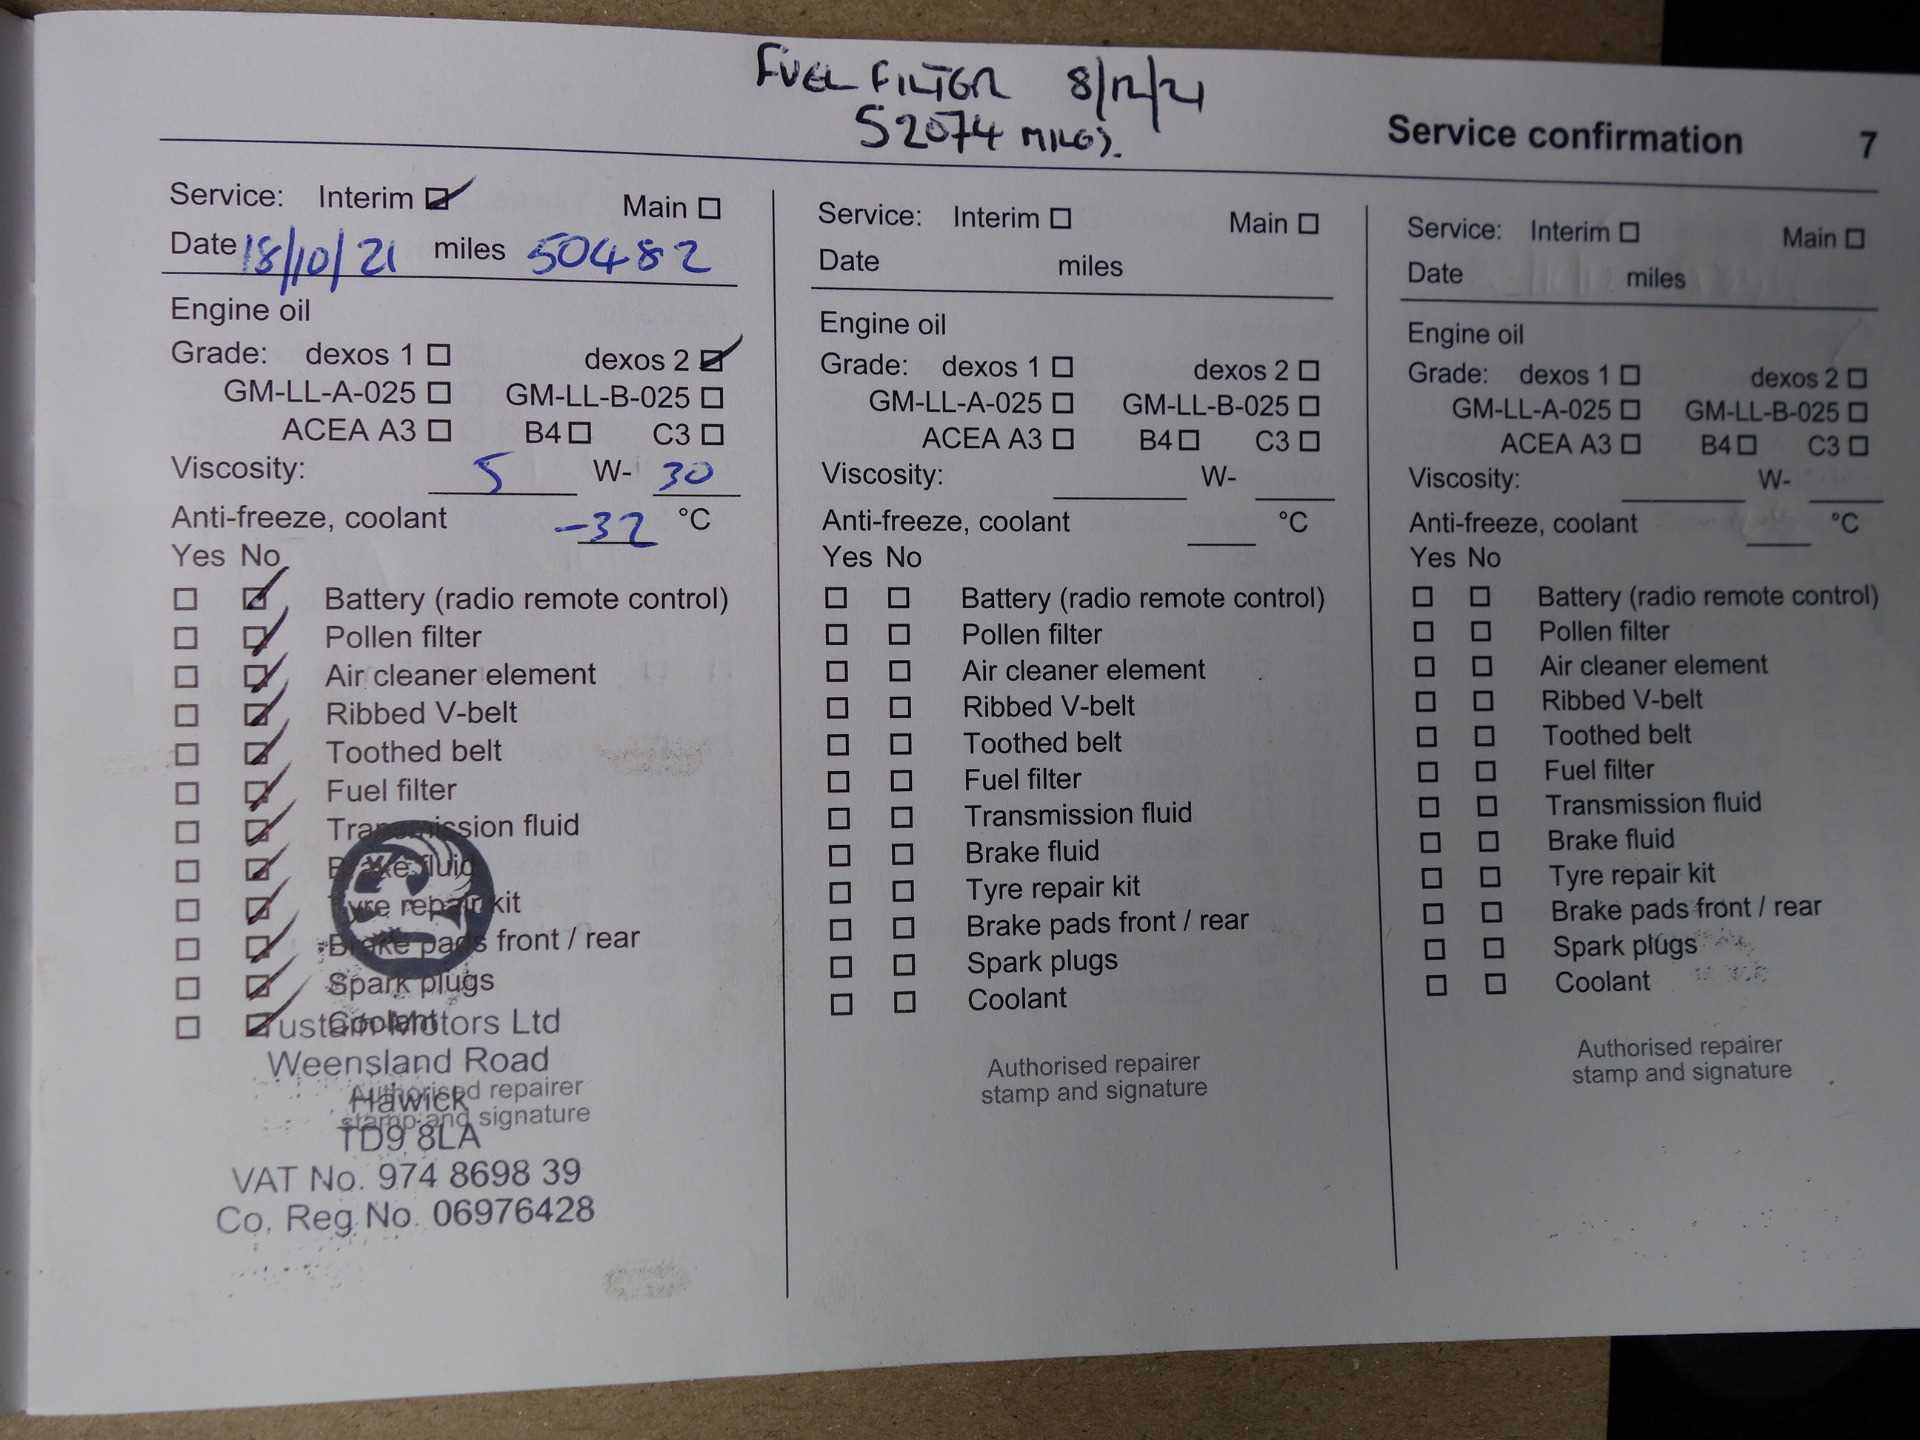 FUEL FILTER 8/12/21
52074 MILES.
Service confirmation 7
Service: Interim Main
Date 18/10/21 miles 50482
Engine oil
Grade: dexos 1 dexos 2
GM-LL-A-025 GM-LL-B-025
ACEA A3 B4 C3
Viscosity: 5 W- 30
Anti-freeze, coolant -32 °C
Yes No
Battery (radio remote control)
Pollen filter
Air cleaner element
Ribbed V-belt
Toothed belt
Fuel filter
Transmission fluid
Brake fluid
Tyre repair kit
Brake pads front / rear
Spark plugs
Coolant
Motors Ltd
Weensland Road
Authorised repairer
Hawick
stamp and signature
TD9 8LA
VAT No. 974 8698 39
Co. Reg No. 06976428
Service: Interim Main
Date miles
Engine oil
Grade: dexos 1 dexos 2
GM-LL-A-025 GM-LL-B-025
ACEA A3 B4 C3
Viscosity: W-
Anti-freeze, coolant °C
Yes No
Battery (radio remote control)
Pollen filter
Air cleaner element
Ribbed V-belt
Toothed belt
Fuel filter
Transmission fluid
Brake fluid
Tyre repair kit
Brake pads front / rear
Spark plugs
Coolant
Authorised repairer
stamp and signature
Service: Interim Main
Date miles
Engine oil
Grade: dexos 1 dexos 2
GM-LL-A-025 GM-LL-B-025
ACEA A3 B4 C3
Viscosity: W-
Anti-freeze, coolant °C
Yes No
Battery (radio remote control)
Pollen filter
Air cleaner element
Ribbed V-belt
Toothed belt
Fuel filter
Transmission fluid
Brake fluid
Tyre repair kit
Brake pads front / rear
Spark plugs
Coolant
Authorised repairer
stamp and signature